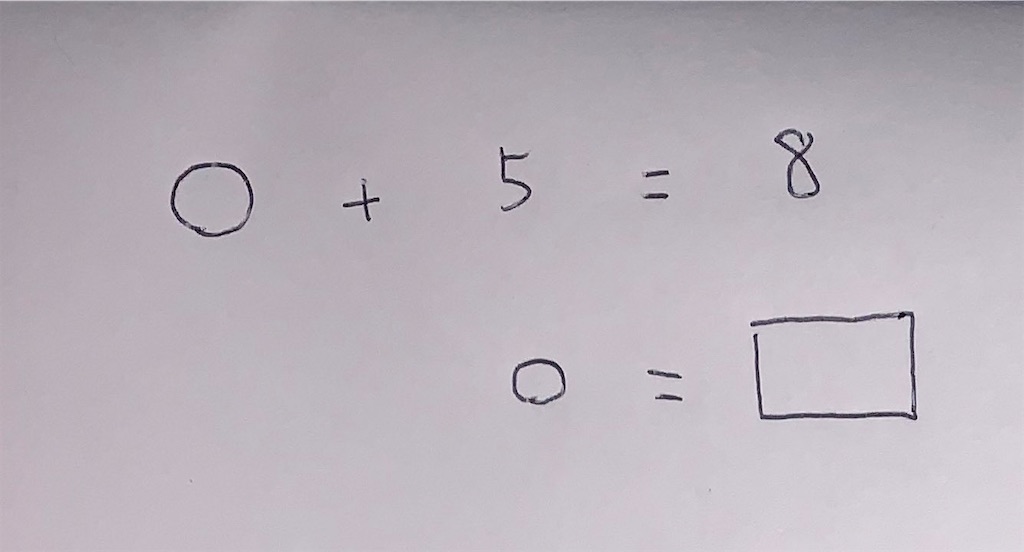 ○ + 5 = 8
○ = □